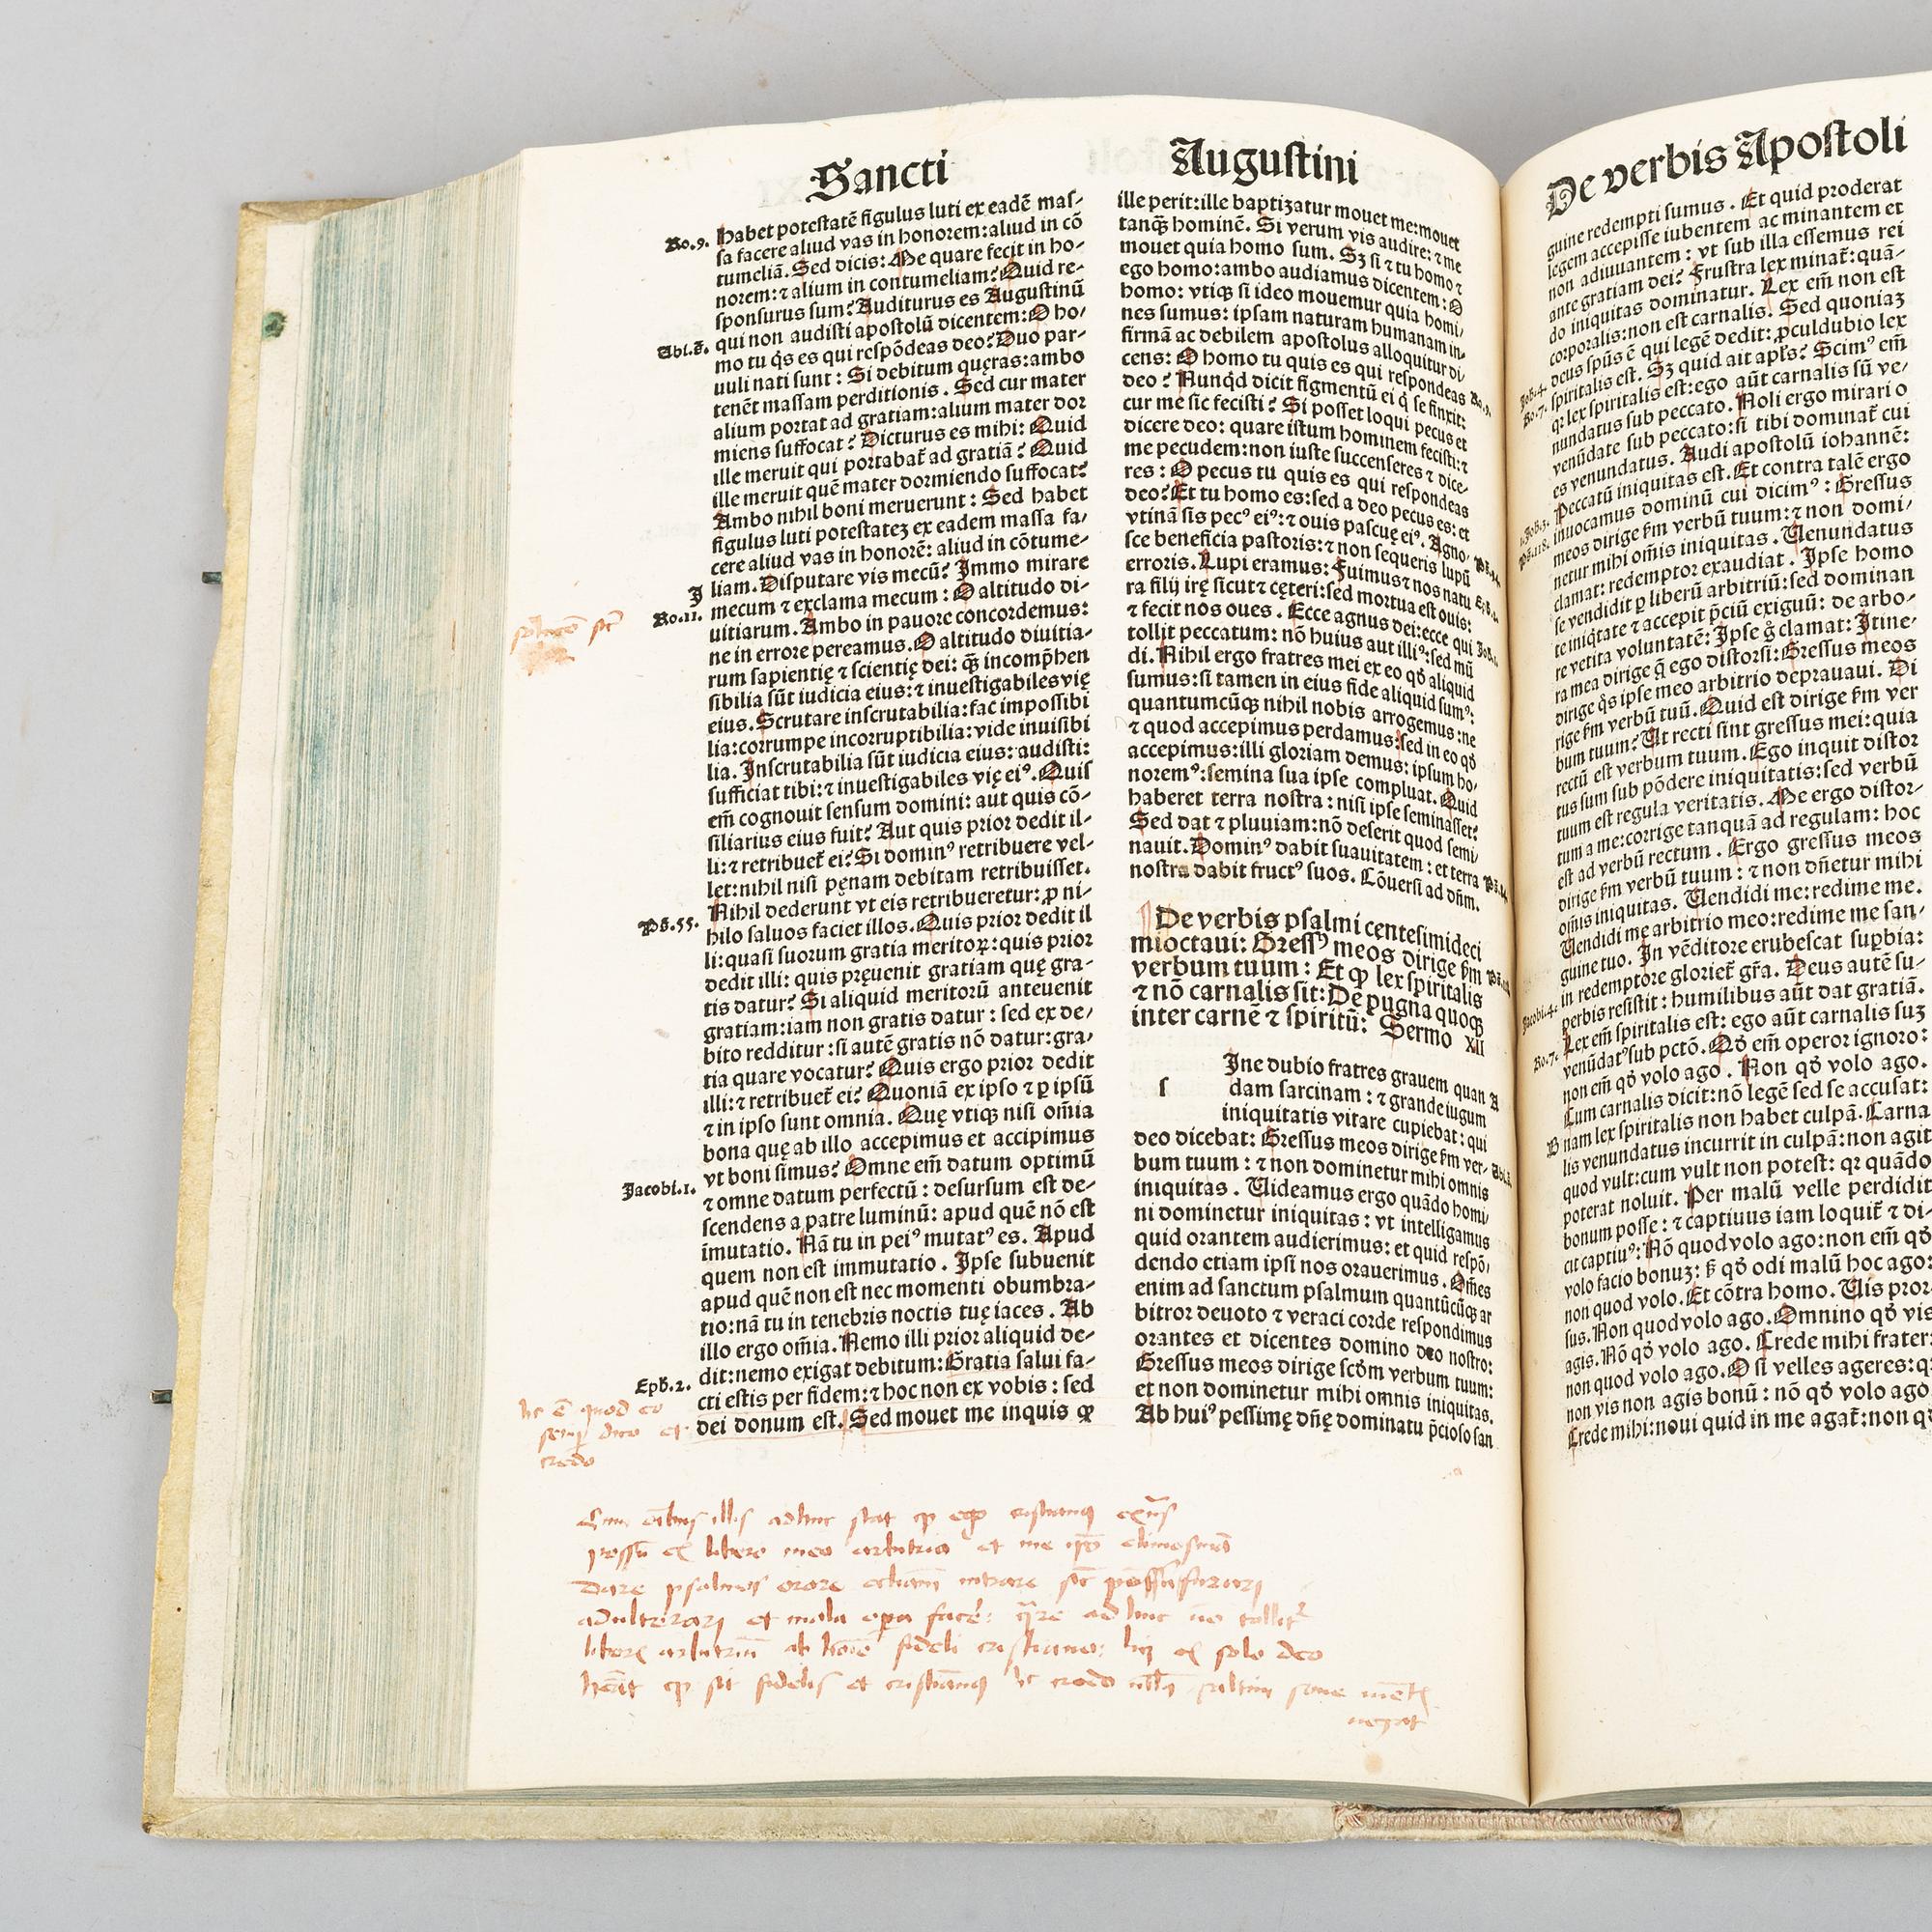 Sancti
Ro.9. Habet potestatē figulus luti ex eadē mas-
sa facere aliud vas in honorem:aliud in cō
tumeliā. Sed dicis: Me quare fecit in ho-
norem: ⁊ alium in contumeliam? Quid re-
sponsurus sum? Auditurus es Augustinū
Ubi.s̄. qui non audisti apostolū dicentem: O ho-
mo tu q̇s es qui respōdeas deo? Duo par-
uuli nati sunt: Si debitum quęras:ambo
tenēt massam perditionis. Sed cur mater
alium portat ad gratiam:alium mater dor
miens suffocat? Dicturus es mihi: Quid
ille meruit qui portabat̄ ad gratiā? Quid
ille meruit quē mater dormiendo suffocat?
Ambo nihil boni meruerunt: Sed habet
figulus luti potestateʒ ex eadem massa fa-
cere aliud vas in honorē: aliud in cōtume-
J liam. Disputare vis mecū? Immo mirare
Ro.11. mecum ⁊ exclama mecum: O altitudo di-
uitiarum. Ambo in pauore concordemus:
ne in errore pereamus. O altitudo diuitia-
rum sapientię ⁊ scientię dei: q̄ȝ incomp̄hen
sibilia sūt iudicia eius: ⁊ inuestigabiles vię
eius. Scrutare inscrutabilia:fac impossibi
lia:corrumpe incorruptibilia:vide inuisibi
lia. Inscrutabilia sūt iudicia eius: audisti:
sufficiat tibi: ⁊ inuestigabiles vię eiꝰ. Quis
em̄ cognouit sensum domini: aut quis cō-
siliarius eius fuit? Aut quis prior dedit il-
li: ⁊ retribuet̄ ei? Si dominꝰ retribuere vel-
let:nihil nisi pęnam debitam retribuisset.
Nihil dederunt vt eis retribueretur: ꝓ ni-
Ps̄.55. hilo saluos faciet illos. Quis prior dedit il
li:quasi suorum gratia meritoꝝ:quis prior
dedit illi: quis pręuenit gratiam quę gra-
tis datur? Si aliquid meritorū anteuenit
gratiam:iam non gratis datur: sed ex de-
bito redditur:si autē gratis nō datur:gra-
tia quare vocatur? Quis ergo prior dedit
illi: ⁊ retribuet̄ ei? Quoniā ex ipso ⁊ ꝑ ipsū
⁊ in ipso sunt omnia. Quę vtiqȝ nisi om̄ia
bona quę ab illo accepimus et accipimus
vt boni simus? Omne em̄ datum optimū
Jacobi.1. ⁊ omne datum perfectū: desursum est de-
scendens a patre luminū: apud quē nō est
īmutatio. Nā tu in peiꝰ mutatꝰ es. Apud
quem non est immutatio. Ipse subuenit
apud quē non est nec momenti obumbra-
tio:nā tu in tenebris noctis tuę iaces. Ab
illo ergo om̄ia. Nemo illi prior aliquid de-
dit:nemo exigat debitum: Gratia salui fa-
Eph̄.2. cti estis per fidem: ⁊ hoc non ex vobis: sed
dei donum est. Sed mouet me inquis ꝙ
hc ē quod eo
semp dico et
credo
Augustini
ille perit:ille baptizatur mouet me:mouet
tanq̄ȝ hominē. Si verum vis audire: ⁊ me
mouet quia homo sum. Sȝ si ⁊ tu homo ⁊
ego homo:ambo audiamus dicentem: O
homo: vtiqȝ si ideo mouemur quia homi-
nes sumus: ipsam naturam humanam in-
firmā ac debilem apostolus alloquitur di-
cens: O homo tu quis es qui respondeas Ro.9.
deo? Nunq̇d dicit figmentū ei q̇ se finxit:
cur me sic fecisti? Si posset loqui pecus et
dicere deo: quare istum hominem fecisti: ⁊
me pecudem:non iuste succenseres ⁊ dice-
res: O pecus tu quis es qui respondeas
deo? Et tu homo es:sed a deo pecus es: et
vtinā sis pecꝰ eiꝰ: ⁊ ouis pascuę eiꝰ. Agno-
sce beneficia pastoris: ⁊ non sequeris lupū
erroris. Lupi eramus: Fuimus ⁊ nos natu
ra filij irę sicut ⁊ cęteri:sed mortua est ouis:
⁊ fecit nos oues. Ecce agnus dei:ecce qui
tollit peccatum: nō huius aut illiꝰ:sed mū
di. Nihil ergo fratres mei ex eo qd̄ aliquid
sumus:si tamen in eius fide aliquid sumꝰ:
quantumcūqȝ nihil nobis arrogemus:ne
⁊ quod accepimus perdamus:sed in eo qd̄
accepimus:illi gloriam demus: ipsum ho-
noremꝰ:semina sua ipse compluat. Quid
haberet terra nostra: nisi ipse seminasset?
Sed dat ⁊ pluuiam:nō deserit quod semi-
nauit. Dominꝰ dabit suauitatem: et terra
nostra dabit fructꝰ suos. Cōuersi ad dn̄m.
De verbis psalmi centesimideci
mioctaui: Gressꝰ meos dirige s̄m
verbum tuum: Et ꝙ lex spiritalis
⁊ nō carnalis sit: De pugna quoqȝ
inter carnē ⁊ spiritū: Sermo XII
Ine dubio fratres grauem quan A
s dam sarcinam: ⁊ grande iugum
iniquitatis vitare cupiebat: qui
deo dicebat: Gressus meos dirige s̄m ver-
bum tuum: ⁊ non dominetur mihi omnis
iniquitas. Uideamus ergo quādo homi-
ni dominetur iniquitas: vt intelligamus
quid orantem audierimus: et quid respō-
dendo etiam ipsi nos orauerimus. Om̄es
enim ad sanctum psalmum quantūcūqȝ ar
bitror deuoto ⁊ veraci corde respondimus
orantes et dicentes domino deo nostro:
Gressus meos dirige scd̄m verbum tuum:
et non dominetur mihi omnis iniquitas.
Ab huiꝰ pessimę dn̄ę dominatu p̄cioso san
adhuc stat ꝙ ego
ex libero meo arbitrio et me
Dare psalmos orare
adulterari et mala opera facere: adhuc
fideli cristiano: ex solo deo
ꝙ sit fidelis et credo
negat
De verbis Apostoli
guine redempti sumus. Et quid proderat
legem accepisse iubentem ac minantem et
non adiuuantem: vt sub illa essemus rei
ante gratiam dei? Frustra lex minat̄:quā-
do iniquitas dominatur. Lex em̄ non est
corporalis:non est carnalis. Sed quoniaʒ
Joh̄.4. deus spūs ē qui legē dedit: ꝓculdubio lex
Ro.7. spiritalis est. Sȝ quid ait apl̄s? Scimꝰ em̄
qꝛ lex spiritalis est:ego aūt carnalis sū ve-
nundatus sub peccato. Noli ergo mirari o
venūdate sub peccato:si tibi dominat̄ cui
es venundatus. Audi apostolū iohannē:
Peccatū iniquitas est. Et contra talē ergo
inuocamus dominū cui dicimꝰ: Gressus
meos dirige s̄m verbū tuum: ⁊ non domi-
netur mihi om̄is iniquitas. Uenundatus
clamat: redemptor exaudiat. Ipse homo
se vendidit ꝑ liberū arbitriū:sed dominan
te iniq̇tate ⁊ accepit p̄ciū exiguū: de arbo-
re vetita voluntatē: Ipse g̊ clamat: Itine-
ra mea dirige q̄ ego distorsi: Gressus meos
dirige q̊s ipse meo arbitrio deprauaui. Di
rige s̄m verbū tuū. Quid est dirige s̄m ver
bum tuum? Ut recti sint gressus mei:quia
rectū est verbum tuum. Ego inquit distor
tus sum sub pōdere iniquitatis:sed verbū
tuum est regula veritatis. Me ergo distor-
tum a me:corrige tanquā ad regulam: hoc
est ad verbū rectum. Ergo gressus meos
dirige s̄m verbū tuum: ⁊ non dn̄etur mihi
om̄is iniquitas. Uendidi me:redime me.
Uendidi me arbitrio meo:redime me san-
guine tuo. In vēditore erubescat supbia:
in redemptore gloriet̄ gr̄a. Deus autē su-
Jacobi.4. perbis resistit: humilibus aūt dat gratiā.
Lex em̄ spiritalis est: ego aūt carnalis suʒ
Ro.7. venūdatꝰ sub pctō. Qd̄ em̄ operor ignoro:
non em̄ qd̄ volo ago. Non qd̄ volo ago.
Cum carnalis dicit:nō legē sed se accusat:
B nam lex spiritalis non habet culpā. Carna
lis venundatus incurrit in culpā:non agit
quod vult:cum vult non potest: qꝛ quādo
poterat noluit. Per malū velle perdidit
bonum posse: ⁊ captiuus iam loquit̄ ⁊ di-
cit captiuꝰ: Nō quod volo ago:non em̄ qd̄
volo facio bonuʒ: s̄ qd̄ odi malū hoc ago:
non quod volo. Et cōtra homo. Uis pror-
sus. Non quod volo ago. Omnino qd̄ vis
agis. Nō qd̄ volo ago. Crede mihi frater:
non quod volo ago. O si velles ageres:q
non vis non agis bonū: nō qd̄ volo ago
Crede mihi:noui quid in me agat̄:non q